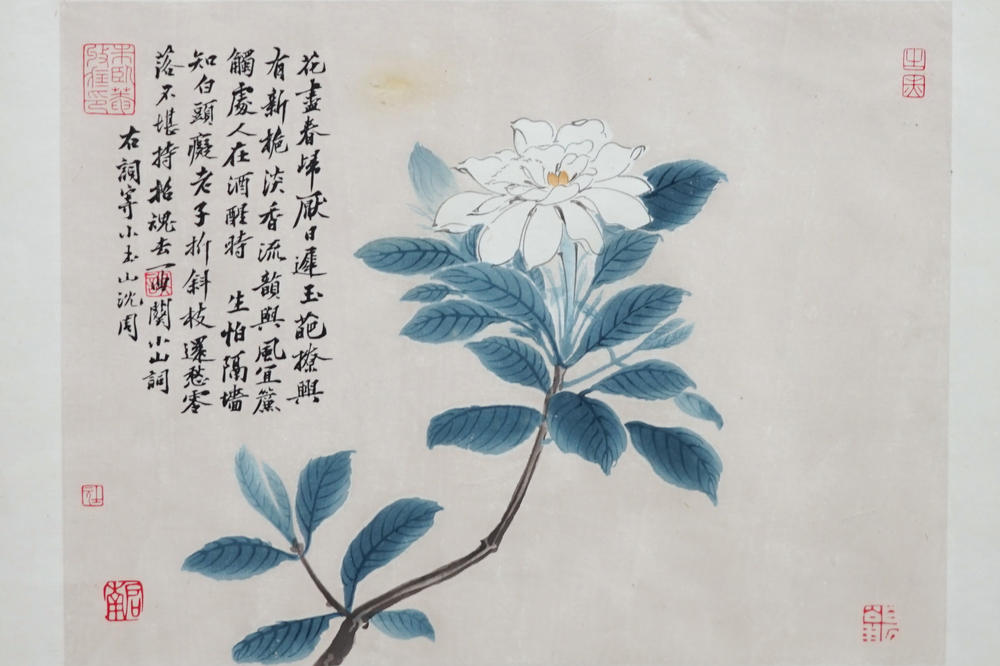 花盡春歸厭日遲玉葩撩興
有新梔淡香流韻與風宜簾
觸處人在酒醒時 生怕隔墻
知白頭癡老子折斜枝還愁零
落不堪持招魂去一闋小山詞
右詞寄小重山沈周
朱臥菴收藏印
啟南